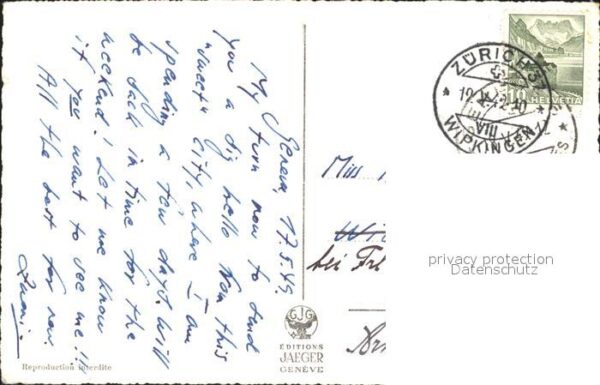 Geneva, 17.5.49.
My turn now to send
you a big hello from this
"sweet" city, where I am
spending a few days. Will
be back in time for the
weekend! Let me know
if you want to see me!!!
All the best for now
Reproduction interdite
GJG
ÉDITIONS
JAEGER
GENÈVE
Miss
bei
10 HELVETIA
ZÜRICH 37
VIII
WIPKINGEN
privacy protection
Datenschutz